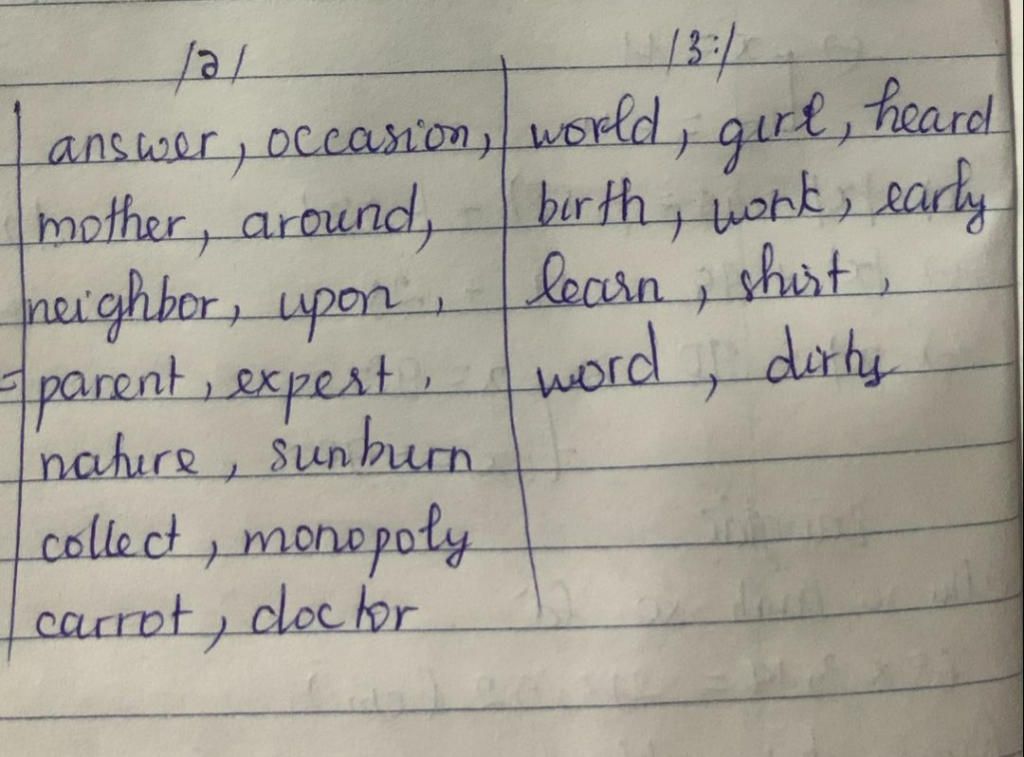 /ə/ /ɜ:/
answer, occasion, world, girl, heard
mother, around, birth, work, early
neighbor, upon, learn, shirt,
= parent, expert, word, dirty
nature, sunburn
collect, monopoly
carrot, doctor